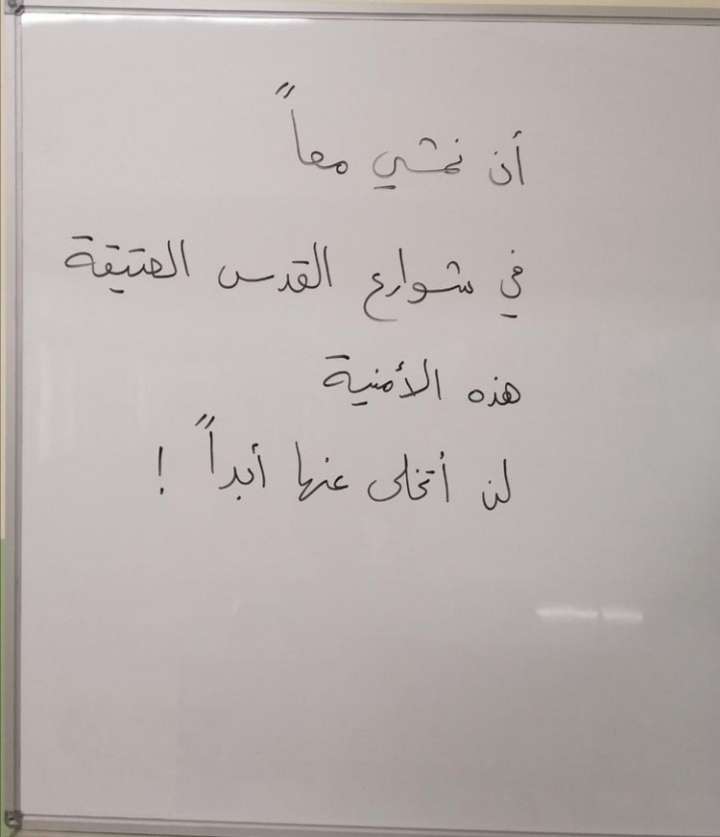 أن نمشي معاً
في شوارع القدس العتيقة
هذه الأمنية
لن أتخلى عنها أبداً !